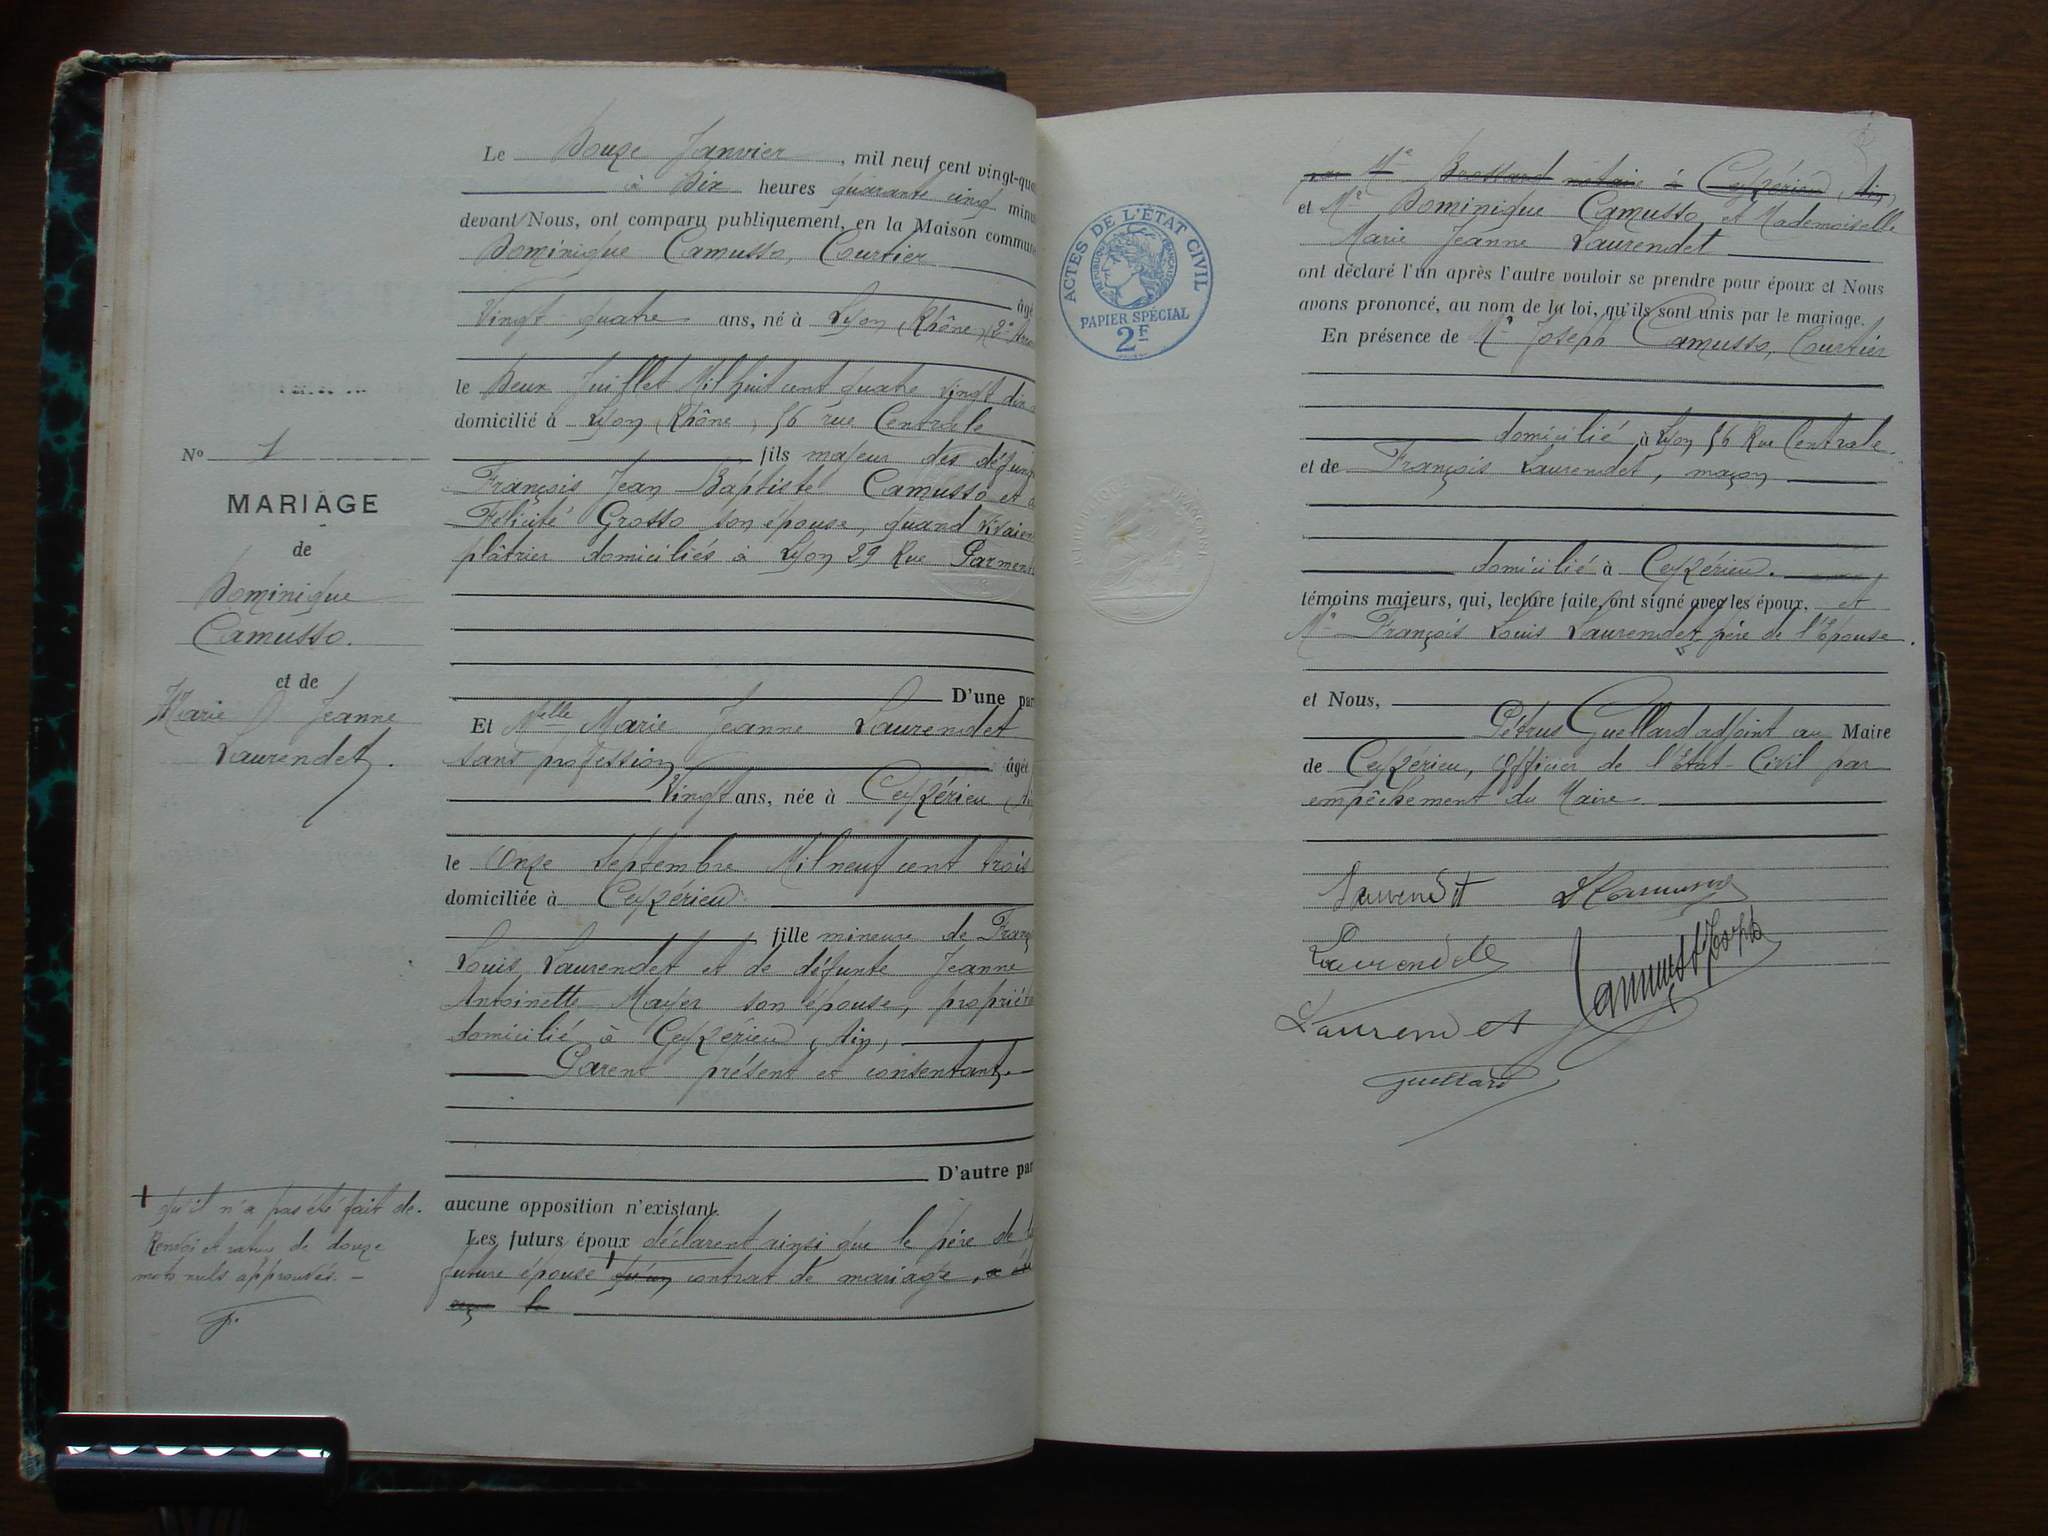 Le Douze Janvier, mil neuf cent vingt-qua
à Dix heures quarante cinq minu
devant Nous, ont comparu publiquement, en la Maison commun
Dominique Camusso, Courtier
âgé
Vingt quatre ans, né à Lyon (Rhône) (2e Arr
le Deux Juillet Mil huit cent quatre vingt dix
domicilié à Lyon (Rhône), 56 rue Centrale
fils majeur des défun
François Jean Baptiste Camusso et d
Félicité Grosso son épouse, quand vivaien
plâtrier domiciliés à Lyon 29 Rue Parmen
D'une par
Et Melle Marie Jeanne Laurendet
sans profession âgée
Vingt ans, née à Ceyzérieu (Ai
le Onze Septembre Mil neuf cent trois
domiciliée à Ceyzérieu
fille mineure de Franç
Louis Laurendet et de défunte Jeanne
Antoinette Mayer son épouse, proprié
domicilié à Ceyzérieu (Ain)
Parent présent et consentant.
D'autre par
aucune opposition n'existant.
Les futurs époux déclarent ainsi que le père de la
future épouse qu'un contrat de mariage, a été
reçu le
No 1
MARIAGE
de
Dominique
Camusso.
et de
Marie Jeanne
Laurendet.
qu'il n'a pas été fait de.
Renvoi et rature de douze
mots nuls approuvés. —
par Me Brossard notaire à Ceyzérieu (Ain)
et Mr Dominique Camusso et Mademoiselle
Marie Jeanne Laurendet
ont déclaré l'un après l'autre vouloir se prendre pour époux et Nous
avons prononcé, au nom de la loi, qu'ils sont unis par le mariage.
En présence de Mr Joseph Camusso, Courtier
domicilié à Lyon 56 Rue Centrale
et de François Laurendet, maçon
domicilié à Ceyzérieu.
témoins majeurs, qui, lecture faite, ont signé avec les époux, et
Mr François Louis Laurendet, père de l'Epouse.
et Nous,
Pétrus Guellard adjoint au Maire
de Ceyzérieu, Officier de l'Etat-Civil par
empêchement du Maire
ACTES DE L'ÉTAT CIVIL
RÉPUBLIQUE FRANÇAISE
PAPIER SPÉCIAL
2F
Laurendet D Camusso
Laurendet Camusso Joseph
Laurendet
Guellard